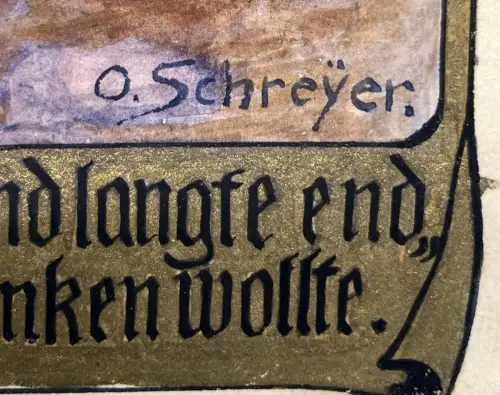 O. Schreÿer.
nd langte end„
nken wollte.